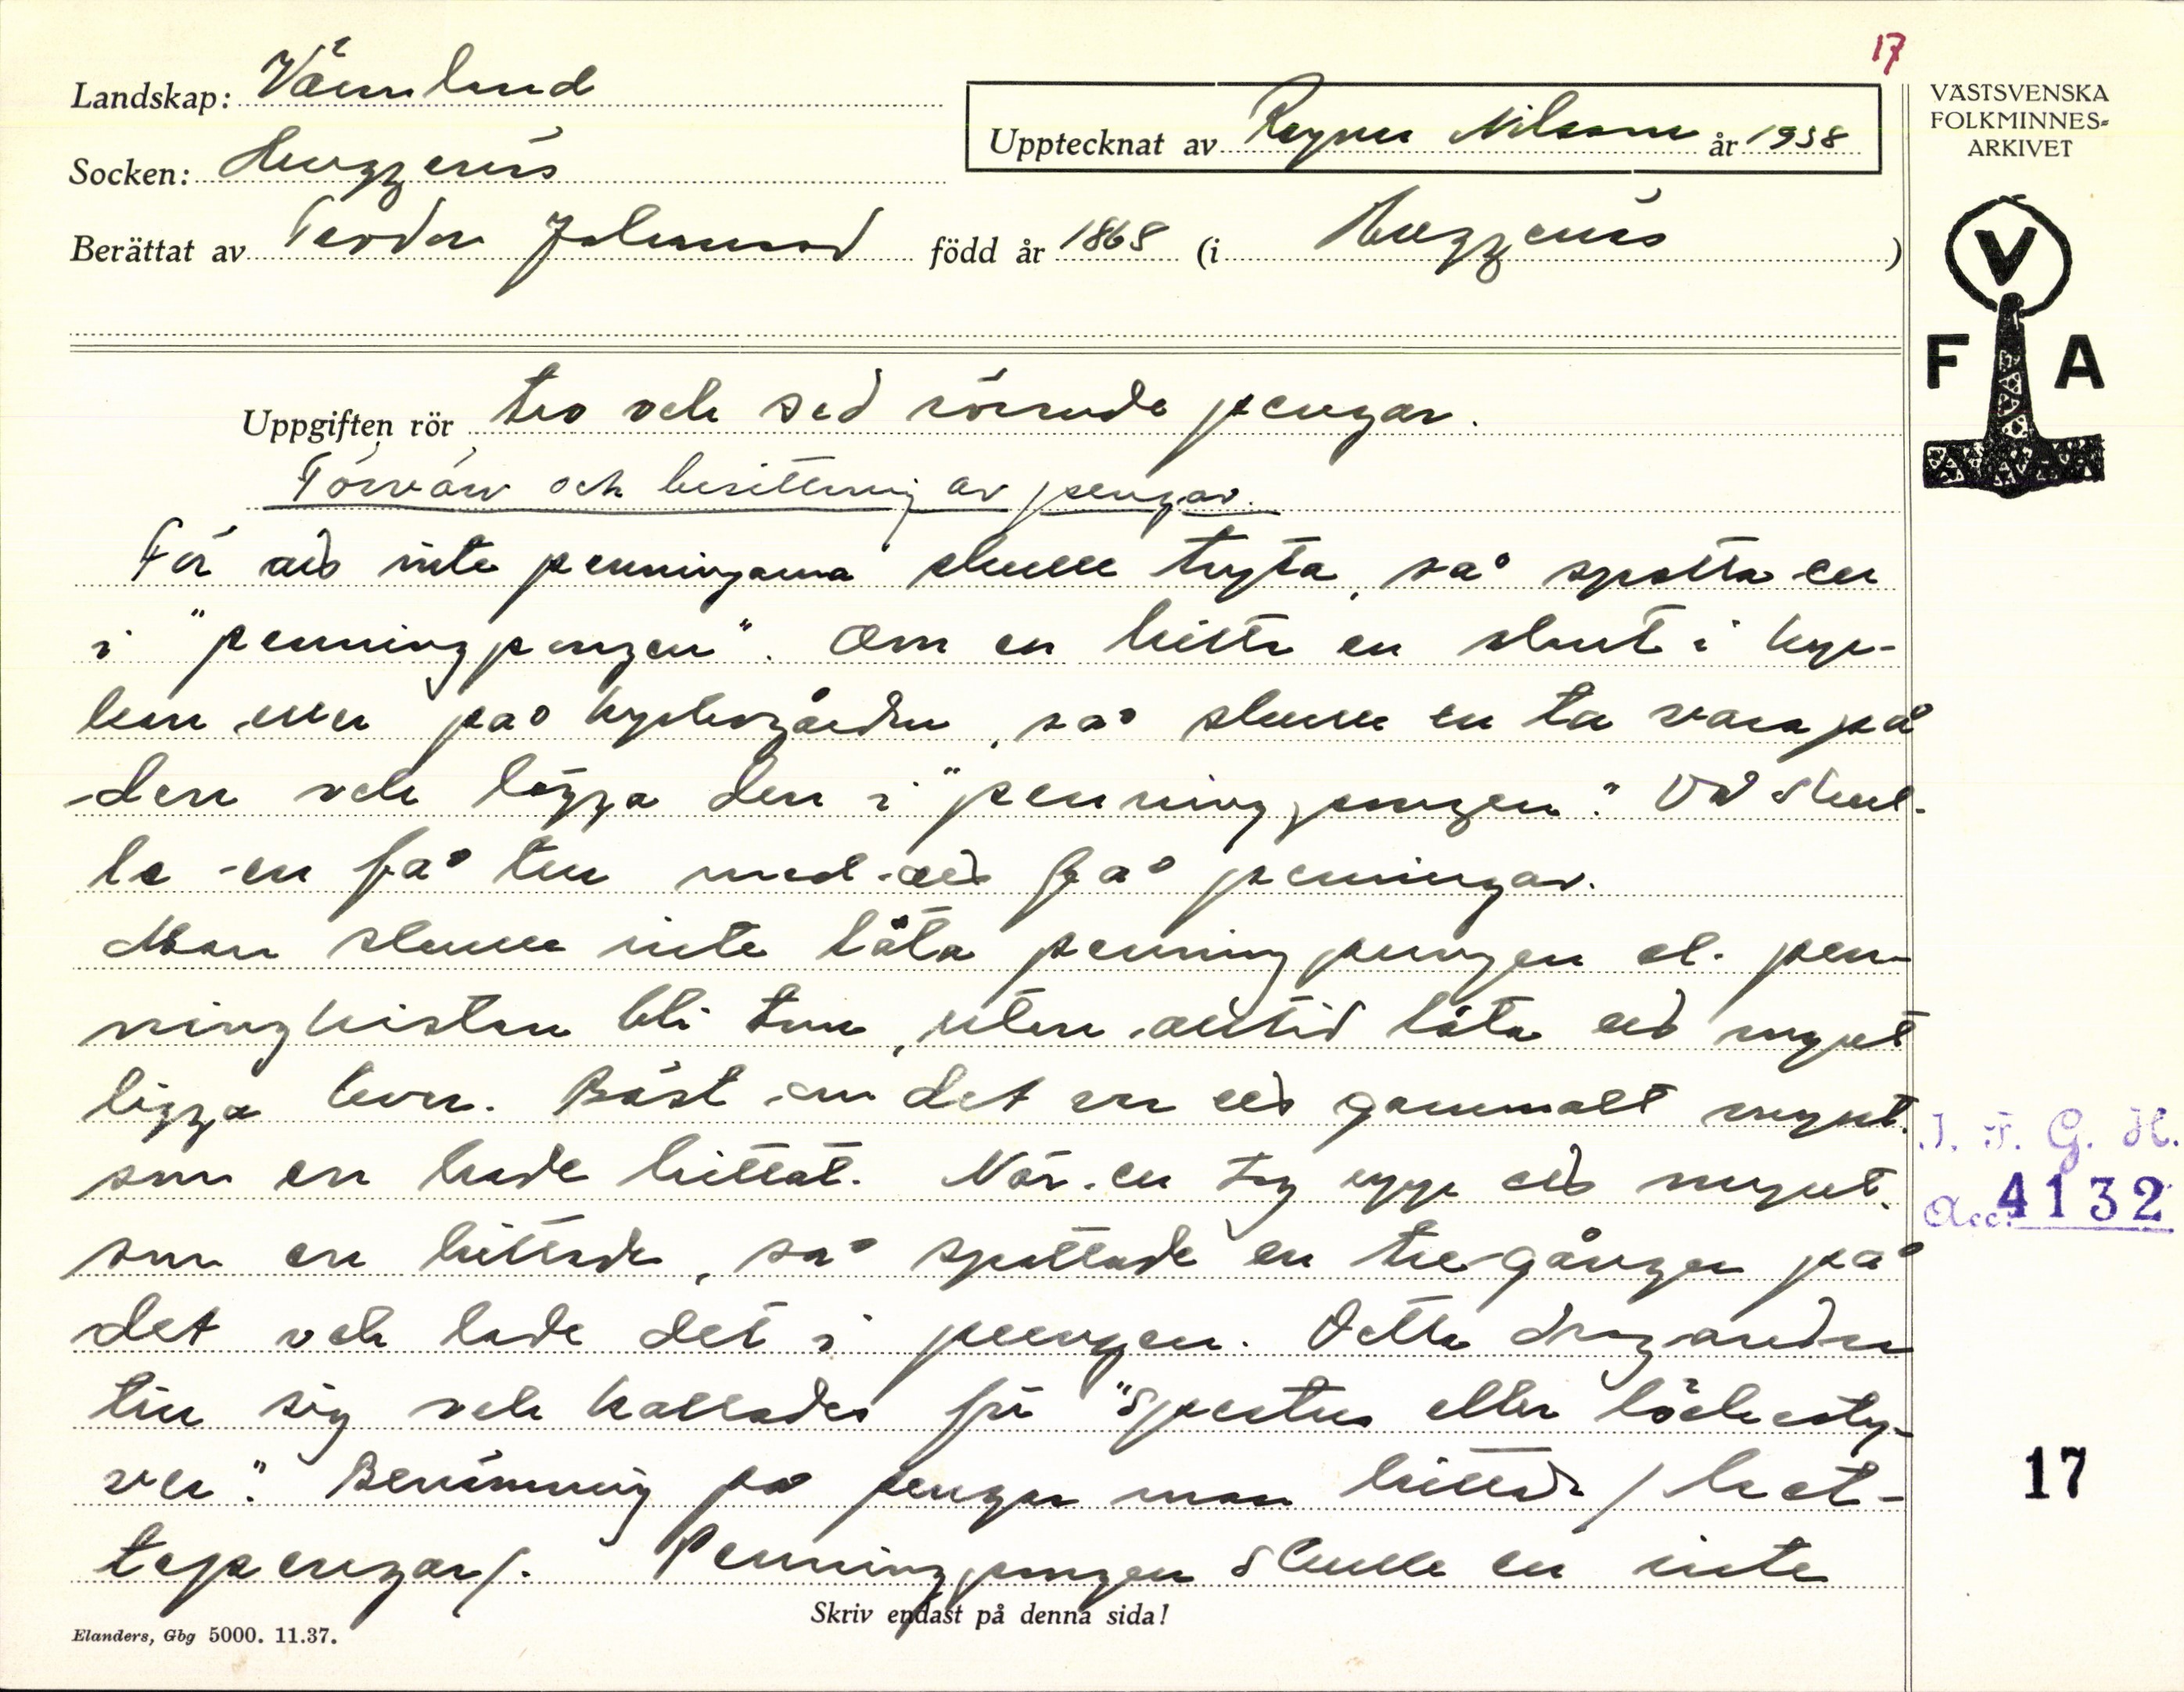 17
Landskap: Värmland
Upptecknat av Ragnar Nilsson år 1938
Socken: Huggenäs
Berättat av Teodor Johansson född år 1868 (i Huggenäs)
VÄSTSVENSKA
FOLKMINNES-
ARKIVET
V
F A
Uppgiften rör tro och sed rörande pengar.
Förvärv och besittning av pengar.
För att inte penningarna skulle tryta, så spotta en
i "penningpungen". Om en hitta en slant i kyr-
kan eller på kyrkogården, så skulle en ta vara på
den och lägga den i "penningpungen." Då skul-
le en få tur med att få penningar.
Man skulle inte låta penningpungen el. pen-
ningkistan bli tom, utan alltid låta ett mynt
ligga kvar. Bäst om det var ett gammalt mynt.
som en hade hittat. När en tog upp ett mynt.
som en hittade, så spottade en tre gånger på
det och lade det i pungen. Detta drog andra
till sig och kallades för "spertus eller löckesty-
ver". Benämning på pengar man hittade / het-
tepengar/. Penningpungen skulle en inte
J. F. G. H.
Acc. 4132
17
Skriv endast på denna sida!
Elanders, Gbg 5000. 11.37.